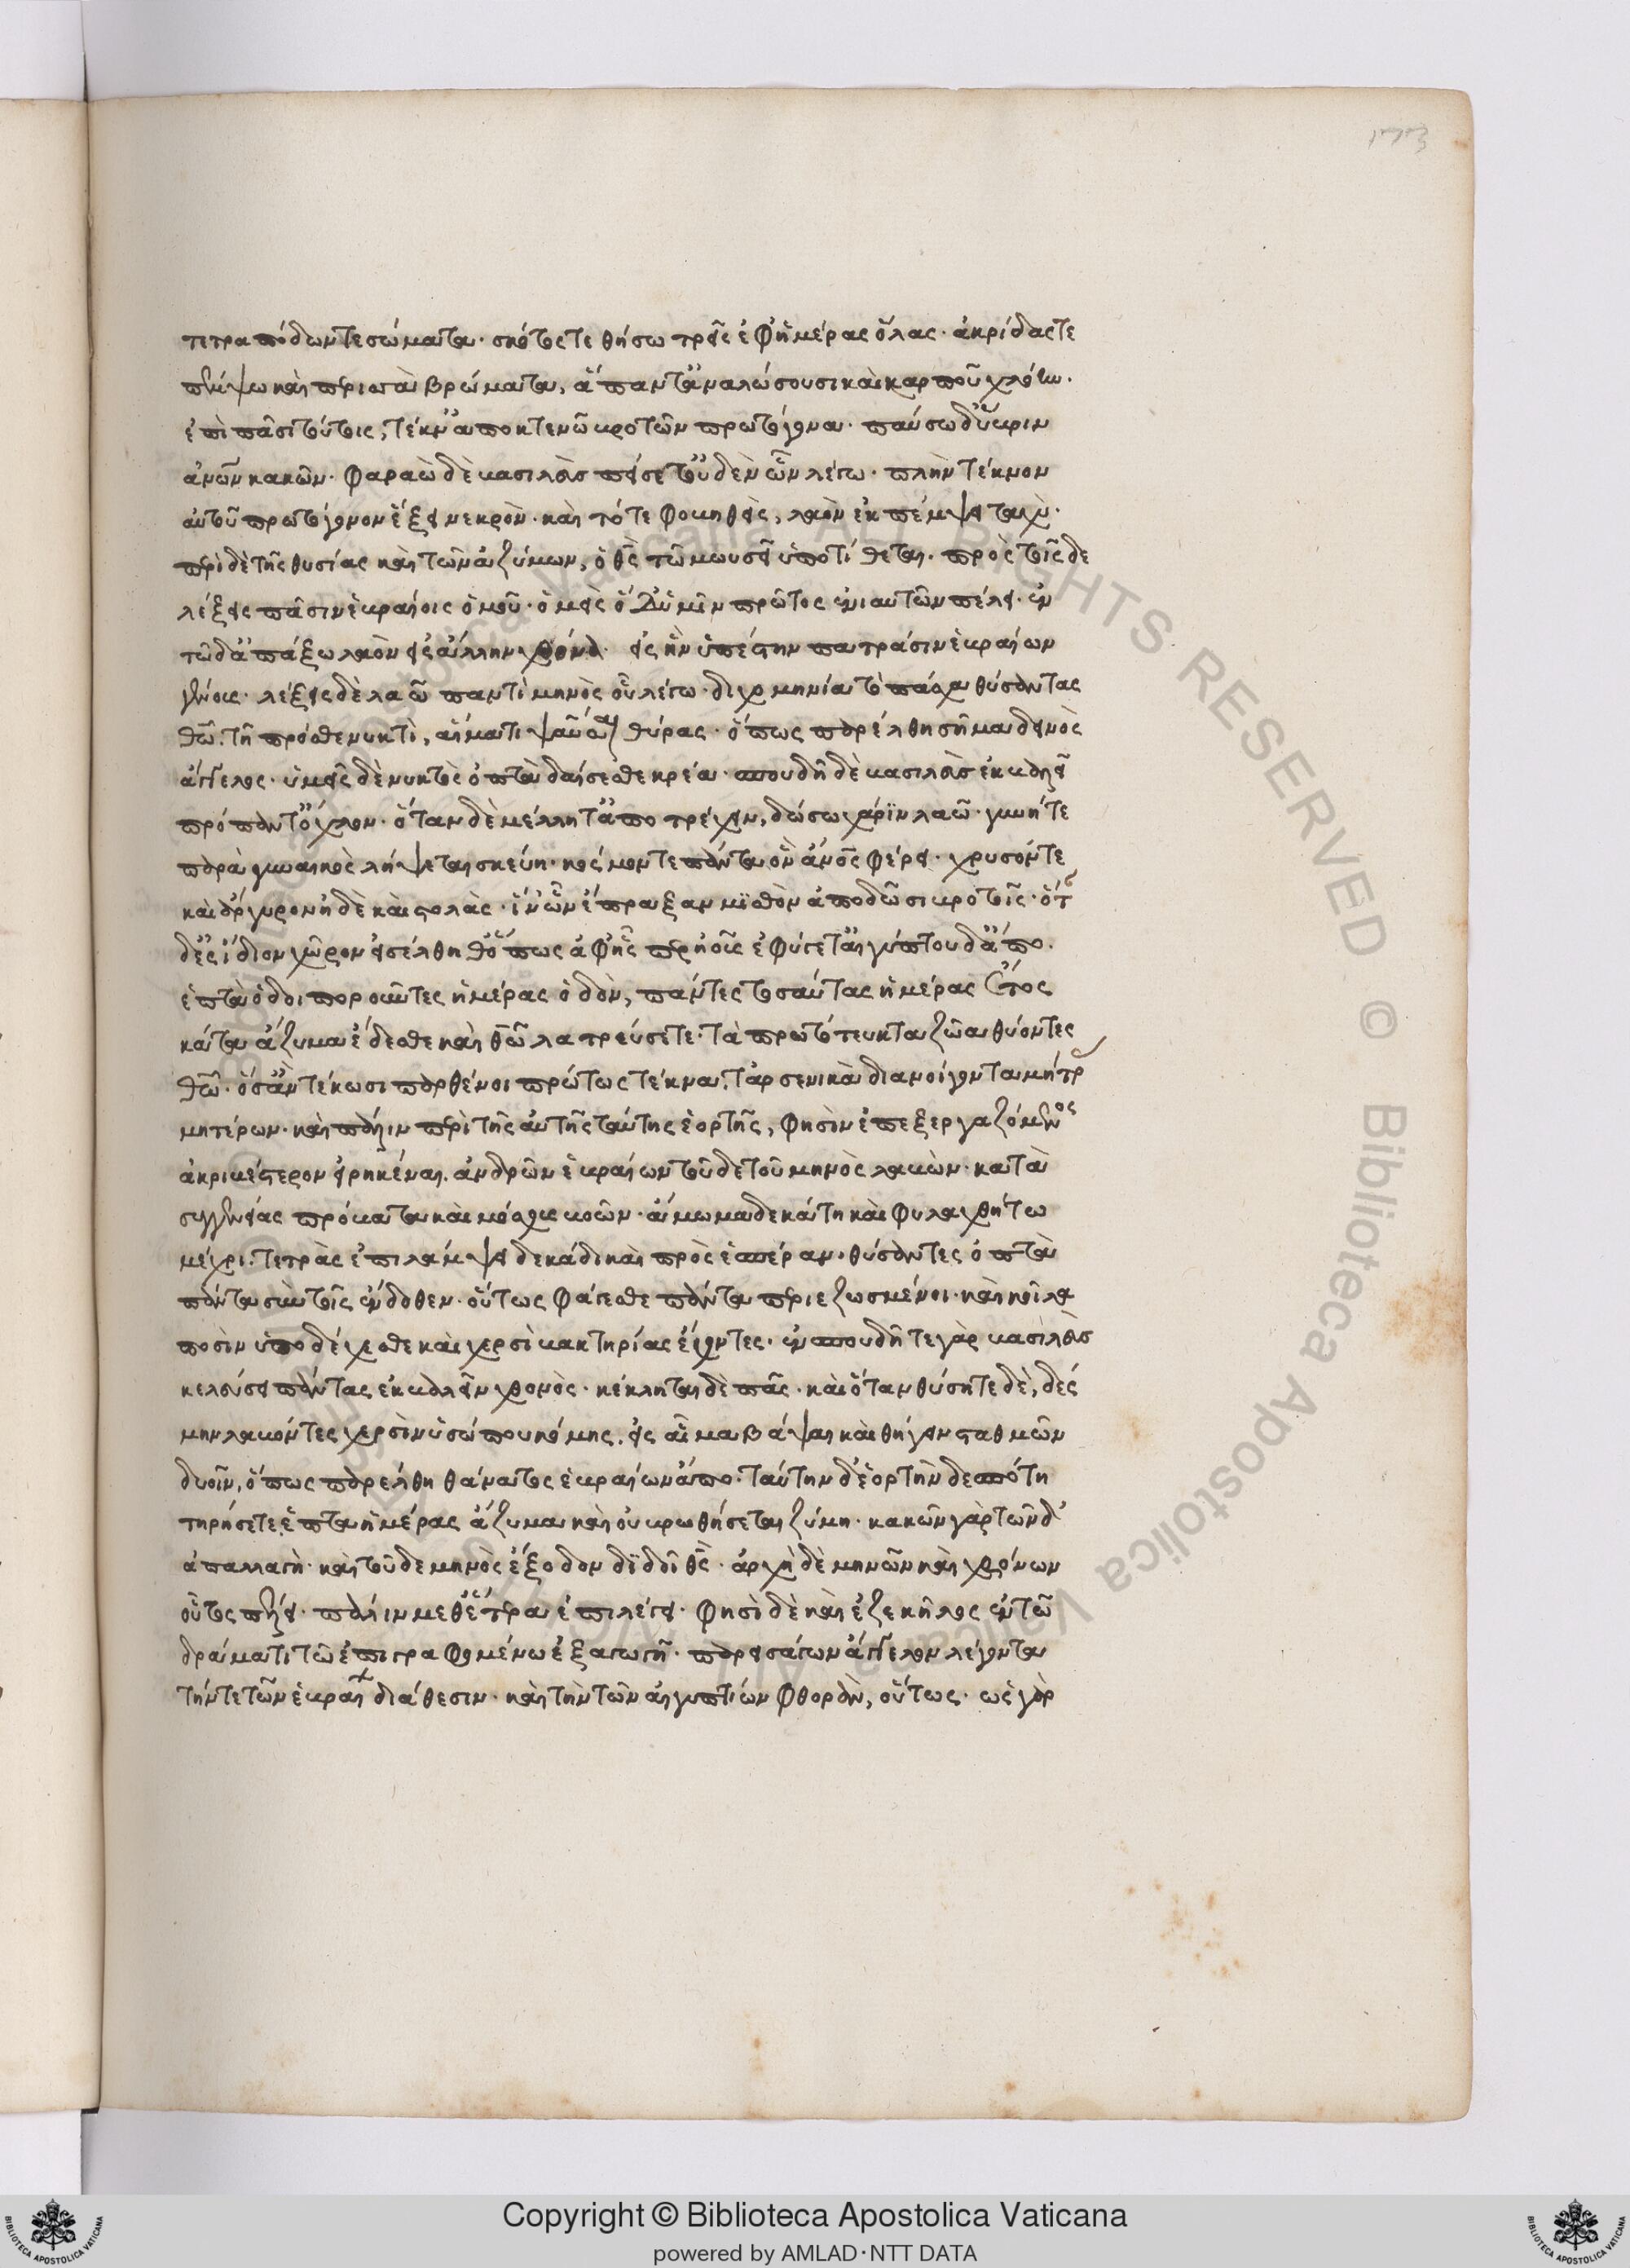 173
τετραπόδων τε σώματα· σκότος τε θήσω τρεῖς ἐφ' ἡμέρας ὅλας· ἀκρίδας τε
πέμψω καὶ περισσὰ βρώματα, ἅπαντ' ἀναλώσουσι καὶ καρποῦ χλόην·
ἐπὶ πᾶσι τούτοις, τέκν' ἀποκτενῶ βροτῶν πρωτόγονα· παύσω δ' ὕβριν
ἀνῶν κακῶν· φαραὼ δὲ βασιλεὺς πείσετ' οὐδὲν ὧν λέγω· πλὴν τέκνον
αὐτοῦ πρωτόγονον ἕξει νεκρὸν· καὶ τότε φοβηθεὶς, λαὸν ἐκπέμψει ταχύ·
περὶ δὲ τῆς θυσίας καὶ τῶν ἀζύμων, ὁ θς τῶ μωυσεῖ ὑποτίθεται. πρὸς τοῖς δε
λέξεις πᾶσιν ἑβραίοις ὁμοῦ· ὁ μεὶς ὅδ' ὑμῖν πρῶτος ἐνιαυτῶν πέλει· ἐν
τῶδ' ἀπάξω λαὸν εἰς ἄλλην χθόνα· εἰς ἣν ὑπέστην πατράσιν ἑβραίων
γένους· λέξεις δὲ λαῶ παντὶ μηνὸς οὗ λέγω· διχομηνία τὸ πάσχα θύσαντας
θῶ. τῆ πρόσθε νυκτὶ, αἵματι ψαῦσαι θύρας· ὅπως παρέλθη σῆμα δεινὸς
ἄγγελος· ὑμεῖς δὲ νυκτὸς ὀπτὰ δαίσεσθε κρέα· σπουδῆ δὲ βασιλεὺς ἐκβαλεῖ
πρόπαντ' ὄχλον· ὅταν δὲ μέλλητ' ἀποτρέχειν, δώσω χάριν λαῶ· γυνή τε
παρὰ γυναικὸς λήψεται σκεύη· κόσμον τε πάντα ὃν ἄνος φέρει· χρυσόν τε
καὶ ἄργυρον ἠδὲ καὶ στολὰς· ἵν' ὧν ἔπραξαν μισθὸν ἀποδῶσι βροτοῖς· ὅτ
δ' ἐς ἴδιον χῶρον εἰσέλθηθ' ὅπως ἀφ' ἧς περ ἠοῦς ἐφύγετ' αἰγύπτου δ' ἄπο.
ἑπτὰ ὁδοιποροῦντες ἡμέρας ὁδὸν, πάντες τοσαύτας ἡμέρας ἔτος
κάτα ἄζυμα ἔδεσθε καὶ θῶ λατρεύσετε· τὰ πρωτότευκτα ζῶα θύοντες
θῶ· ὅσ' ἂν τέκωσι παρθένοι πρώτως τέκνα· τἀρσενικὰ διανοίγοντα μήτρ
μητέρων· καὶ πάλιν περὶ τῆς αὐτῆς ταύτης ἑορτῆς, φησὶν ἐπεξεργαζόμενος
ἀκριβέστερον εἰρηκέναι. ἀνδρῶν ἑβραίων τοῦδε τοῦ μηνὸς λαβὼν· κατὰ
συγγενείας πρόβατα καὶ μόσχους βοῶν· ἄμωμα δεκάτη καὶ φυλαχθήτω
μέχρι. τετρὰς ἐπιλάμψει δεκάδι καὶ πρὸς ἑσπέραν· θύσαντες ὀπτὰ
πάντα σὺν τοῖς ἔνδοθεν· οὕτως φάγεσθε πάντα περιεζωσμένοι· καὶ κοῖλα
ποσὶν ὑποδέχεσθε καὶ χερσὶ βακτηρίας ἔχοντες· ἐν σπουδῆ τε γὰρ βασιλεὺς
κελεύσει πάντας ἐκβαλεῖν χθονὸς· κέκληται δὲ πᾶς· καὶ ὅταν θύσητε δὲ, δέσ
μην λαβόντες χερσὶν ὑσώπου κόμης. εἰς αἷμα βάψαι καὶ θήγειν σταθμῶν
δυοῖν, ὅπως παρέλθη θάνατος ἑβραίων ἄπο· ταύτην δ' ἑορτὴν δεσπότη
τηρήσετε ἑπτα ἡμέρας ἄζυμα καὶ οὐ βρωθήσεται ζύμη· κακῶν γὰρ τῶνδ'
ἀπαλλαγὴ· καὶ τοῦδε μηνὸς ἔξοδον διδοῖ θς· ἀρχὴ δὲ μηνῶν καὶ χρόνων
οὗτος πέλει· πάλιν μεθ' ἕτερα ἐπιλέγει· φησὶ δὲ καὶ ἐζεκιῆλος ἐν τῶ
δράματι τῶ ἐπιγραφομένω ἐξαγωγῆ· παρεισάγων ἄγγελον λέγοντα
τήν τε τῶν ἑβραίων διάθεσιν· καὶ τὴν τῶν αἰγυπτίων φθορὰν, οὕτως· ὡς γὰρ
Copyright © Biblioteca Apostolica Vaticana
powered by AMLAD·NTT DATA